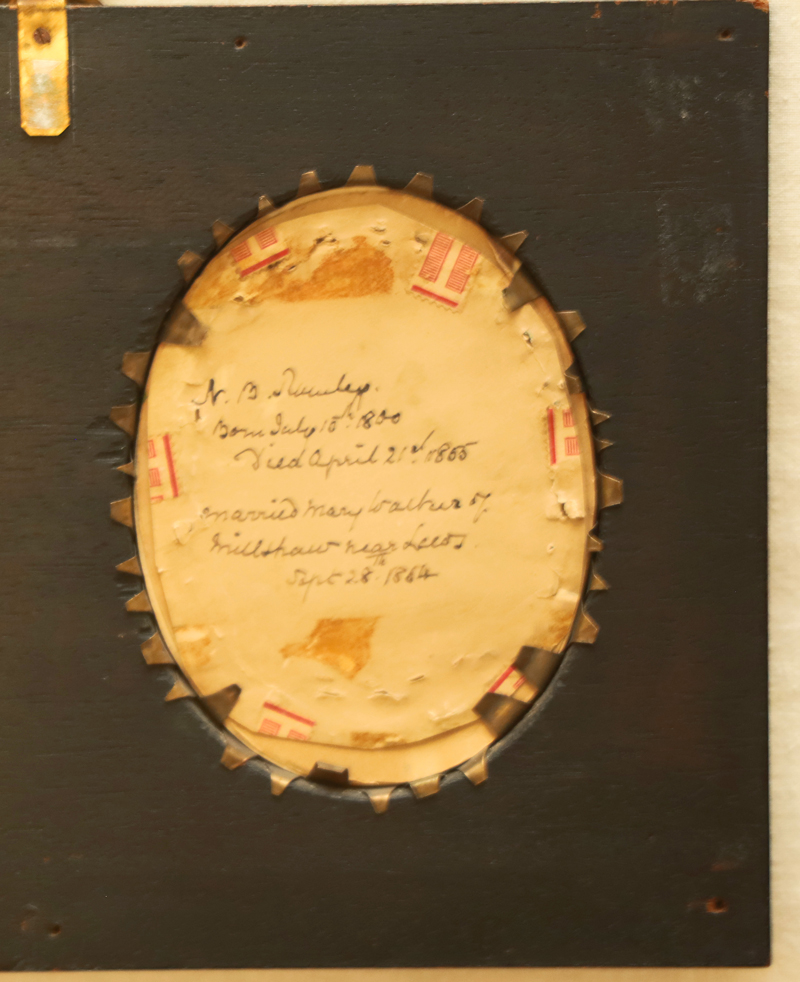 N. B.
Born July 15th 1800
Died April 21st 1865
Married Mary Walker of
Millshaw near Leeds.
Sept 28th 1864